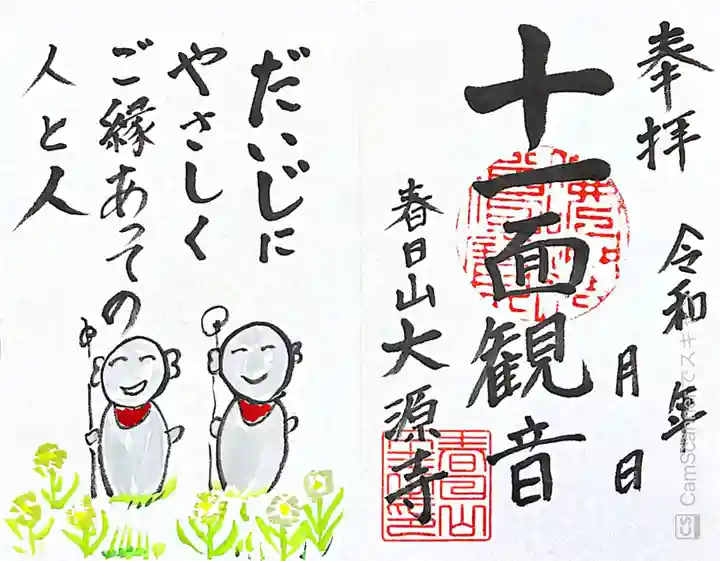 奉拝 令和 年 月 日
十一面観音
春日山 大源寺
だいじに
やさしく
ご縁あっての
人と人
CS CamScannerでスキャン